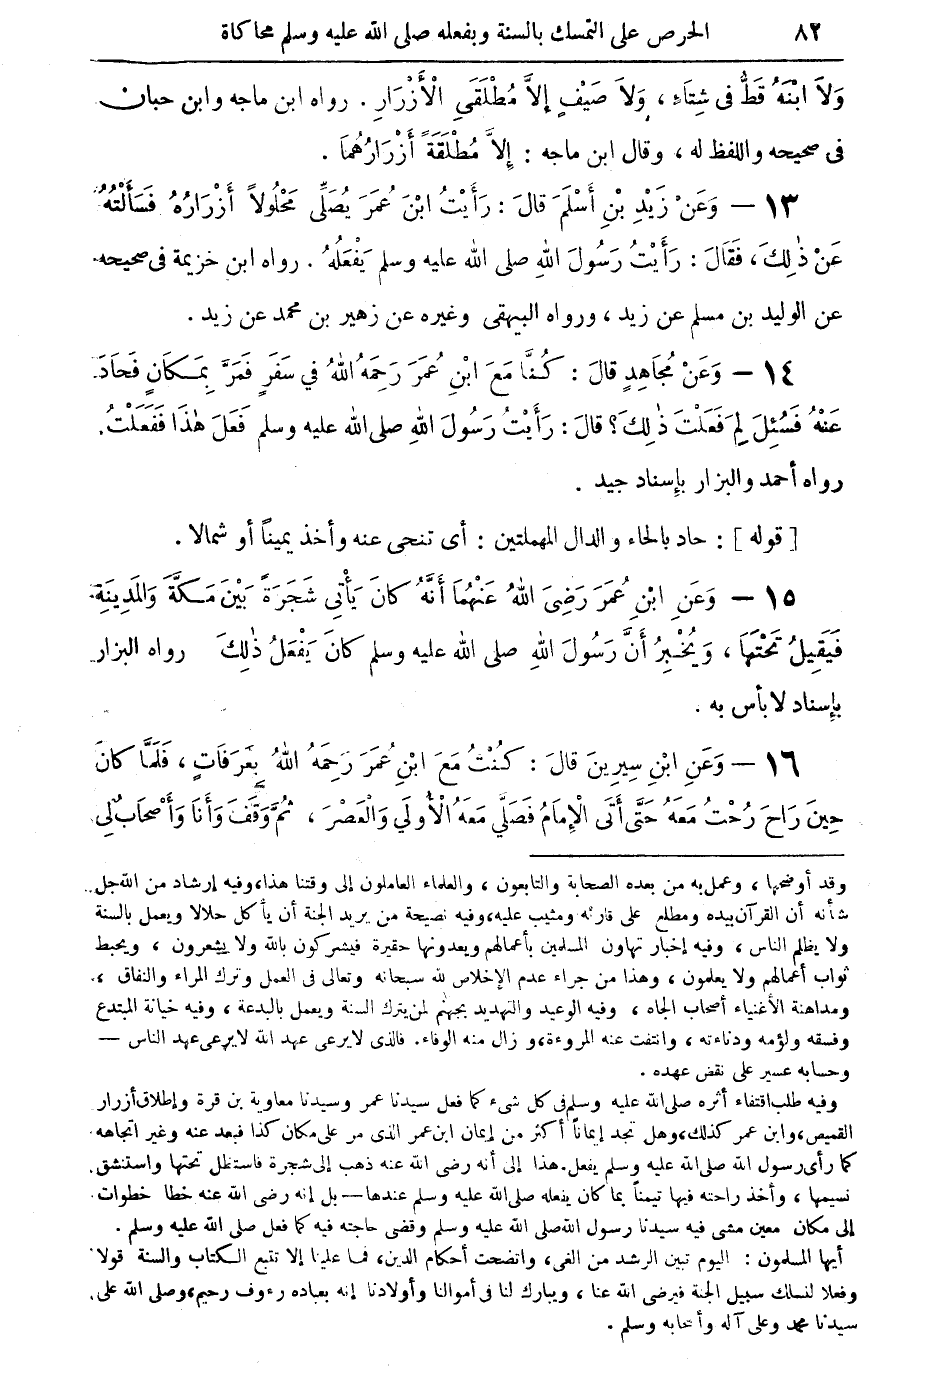 ٨٢ الحرص على التمسك بالسنة وبفعله صلى الله عليه وسلم محاكاة
وَلاَ ابْنَهُ قَطُّ فى شِتَاءِ ، وَلاَ صَيْفٍ إِلاَّ مُطْلَقَىِ الْأَزْرَارِ . رواه ابن ماجه وابن حبان
فى صحيحه واللفظ له ، وقال ابن ماجه : إِلاَّ مُطْلَقَةً أَزْرَارُهُمَا .
١٣ — وَعَنْ زَيْدِ بْنِ أَسْلَمَ قالَ : رَأَيْتُ ابْنَ عُمَرَ يُصَلِّى مَحْلُولاً أَزْرَارُهُ فَسَأَلْتُهُ
عَنْ ذٰلِكَ ، فَقَالَ : رَأَيْتُ رَسُولَ اللهِ صلى الله عليه وسلم يَفْعَلُهُ . رواه ابن خزيمة فى صحيحه
عن الوليد بن مسلم عن زيد ، ورواه البيهقى وغيره عن زهير بن محمد عن زيد .
١٤ — وَعَنْ مُجَاهِدٍ قالَ : كُنَّا مَعَ ابْنِ عُمَرَ رَحِمَهُ اللهُ فِي سَفَرٍ فَمَرَّ بِمَكَانٍ فَحَادَ
عَنْهُ فَسُئِلَ لِمَ فَعَلْتَ ذٰلِكَ؟ قالَ : رَأَيْتُ رَسُولَ اللهِ صلى الله عليه وسلم فَعَلَ هٰذَا فَفَعَلْتُ.
رواه أحمد والبزار بإسناد جيد .
[ قوله ] : حاد بالحاء والدال المهملتين : أى تنحى عنه وأخذ يميناً أو شمالا .
١٥ — وَعَنِ ابْنِ عُمَرَ رَضِىَ اللهُ عَنْهُمَا أَنَّهُ كانَ يَأْتِى شَجَرَةً بَيْنَ مَكَّةَ وَالمَدِينَةِ
فَيَقِيلُ تَحْتَهَا ، وَيُخْبِرُ أَنَّ رَسُولَ اللهِ صلى الله عليه وسلم كانَ يَفْعَلُ ذٰلِكَ رواه البزار
بإسناد لا بأس به .
١٦ — وَعَنِ ابْنِ سِيرِينَ قالَ : كُنْتُ مَعَ ابْنِ عُمَرَ رَحِمَهُ اللهُ بِعَرَفَاتٍ ، فَلَمَّا كانَ
حِينَ رَاحَ رُحْتُ مَعَهُ حَتَّى أَتَى الْإِمَامُ فَصَلَّى مَعَهُ الْأُولَى وَالْعَصْرَ ، ثُمَّ وَقَفَ وَأَنَا وَأَصْحَابٌ لِى
وقد أوضحها ، وعمل به من بعده الصحابة والتابعون ، والعلماء العاملون إلى وقتنا هذا، وفيه إرشاد من الله جل
شأنه أن القرآن بيده ومطلع على قارئه ومثيب عليه، وفيه نصيحة من يريد الجنة أن يأكل حلالا ويعمل بالسنة
ولا يظلم الناس ، وفيه إخبار تهاون المسلمين بأعمالهم ويعدونها حقيرة فيشركون بالله ولا يشعرون ، ويحبط
ثواب أعمالهم ولا يعلمون ، وهذا من جراء عدم الإخلاص لله سبحانه وتعالى فى العمل وترك المراء والنفاق ،
ومداهنة الأغنياء أصحاب الجاه ، وفيه الوعيد والتهديد بجهنم لمن يترك السنة ويعمل بالبدعة ، وفيه خيانة المبتدع
وفسقه ولؤمه ودناءته ، وانتفت عنه المروءة، وزال منه الوفاء. فالذى لا يرعى عهد الله لا يرعى عهد الناس —
وحسابه عسير على نقض عهده .
وفيه طلب اقتفاء أثره صلى الله عليه وسلم فى كل شىء كما فعل سيدنا عمر وسيدنا معاوية بن قرة وإطلاق أزرار
القميص، وابن عمر كذلك، وهل تجد إيماناً أكثر من إيمان ابن عمر الذى مر على مكان كذا فبعد عنه وغير اتجاهه
كما رأى رسول الله صلى الله عليه وسلم يفعل. هذا إلى أنه رضى الله عنه ذهب إلى شجرة فاستظل تحتها واستنشق
نسيمها ، وأخذ راحته فيها تيمناً بما كان يفعله صلى الله عليه وسلم عندها — بل إنه رضى الله عنه خطا خطوات
إلى مكان معين مشى فيه سيدنا رسول الله صلى الله عليه وسلم وقضى حاجته فيه كما فعل صلى الله عليه وسلم .
أيها المسلمون : اليوم تبين الرشد من الغى، واتضحت أحكام الدين، فما علينا إلا نتبع الكتاب والسنة قولا
وفعلا لنسلك سبيل الجنة فيرضى الله عنا ، ويبارك لنا فى أموالنا وأولادنا إنه بعباده رءوف رحيم، وصلى الله على
سيدنا محمد وعلى آله وأصحابه وسلم .